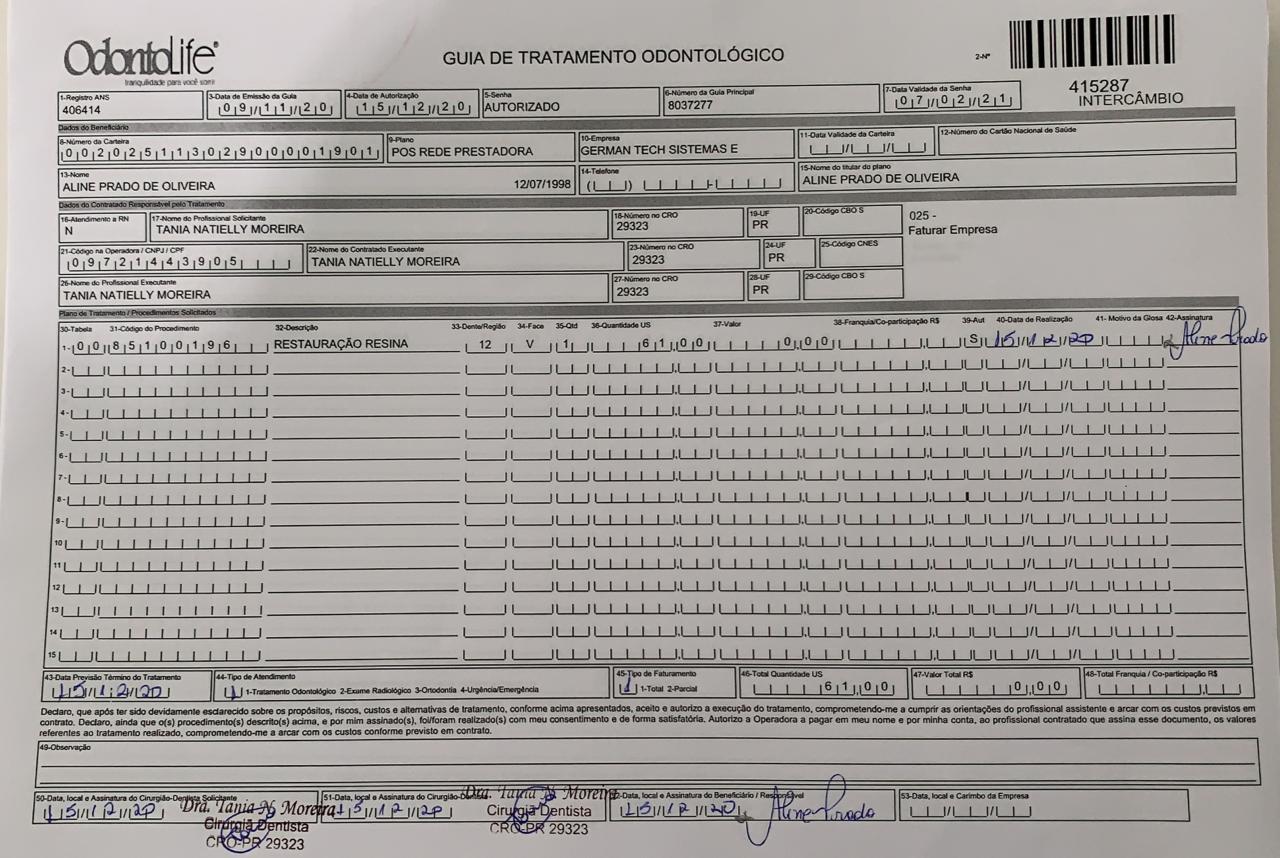 OdontoLife®
tranquilidade para você sorrir
GUIA DE TRATAMENTO ODONTOLÓGICO
2-Nº
415287
INTERCÂMBIO
1-Registro ANS
406414
3-Data de Emissão da Guia
09/11/20
4-Data de Autorização
15/12/20
5-Senha
AUTORIZADO
6-Número da Guia Principal
8037277
7-Data Validade da Senha
07/02/21
Dados do Beneficiário
8-Número da Carteira
00202511302900001901
9-Plano
POS REDE PRESTADORA
10-Empresa
GERMAN TECH SISTEMAS E
11-Data Validade da Carteira
12-Número do Cartão Nacional de Saúde
13-Nome
ALINE PRADO DE OLIVEIRA 12/07/1998
14-Telefone
15-Nome do titular do plano
ALINE PRADO DE OLIVEIRA
Dados do Contratado Responsável pelo Tratamento
16-Atendimento a RN
N
17-Nome do Profissional Solicitante
TANIA NATIELLY MOREIRA
18-Número no CRO
29323
19-UF
PR
20-Código CBO S
025 -
Faturar Empresa
21-Código na Operadora / CNPJ / CPF
09721443905
22-Nome do Contratado Executante
TANIA NATIELLY MOREIRA
23-Número no CRO
29323
24-UF
PR
25-Código CNES
26-Nome do Profissional Executante
TANIA NATIELLY MOREIRA
27-Número no CRO
29323
28-UF
PR
29-Código CBO S
Plano de Tratamento / Procedimentos Solicitados
30-Tabela 31-Código do Procedimento 32-Descrição 33-Dente/Região 34-Face 35-Qtd 36-Quantidade US 37-Valor 38-Franquia/Co-participação R$ 39-Aut 40-Data de Realização 41- Motivo da Glosa 42-Assinatura
1- 00 85100196 RESTAURAÇÃO RESINA 12 V 1 61,00 0,00 S 15/12/20 Aline Prado
2-
3-
4-
5-
6-
7-
8-
9-
10
11
12
13
14
15
43-Data Previsão Término do Tratamento
15/12/20
44-Tipo de Atendimento
1 1-Tratamento Odontológico 2-Exame Radiológico 3-Ortodontia 4-Urgência/Emergência
45-Tipo de Faturamento
1 1-Total 2-Parcial
46-Total Quantidade US
61,00
47-Valor Total R$
0,00
48-Total Franquia / Co-participação R$
Declaro, que após ter sido devidamente esclarecido sobre os propósitos, riscos, custos e alternativas de tratamento, conforme acima apresentados, aceito e autorizo a execução do tratamento, comprometendo-me a cumprir as orientações do profissional assistente e arcar com os custos previstos em
contrato. Declaro, ainda que o(s) procedimento(s) descrito(s) acima, e por mim assinado(s), foi/foram realizado(s) com meu consentimento e de forma satisfatória. Autorizo a Operadora a pagar em meu nome e por minha conta, ao profissional contratado que assina esse documento, os valores
referentes ao tratamento realizado, comprometendo-me a arcar com os custos conforme previsto em contrato.
49-Observação
50-Data, local e Assinatura do Cirurgião-Dentista Solicitante
15/12/20
Dra. Tania N. Moreira
Cirurgiã Dentista
CRO-PR 29323
51-Data, local e Assinatura do Cirurgião-Dentista
15/12/20
Dra. Tania N. Moreira
Cirurgiã Dentista
CRO-PR 29323
52-Data, local e Assinatura do Beneficiário / Responsável
15/12/20 Aline Prado
53-Data, local e Carimbo da Empresa